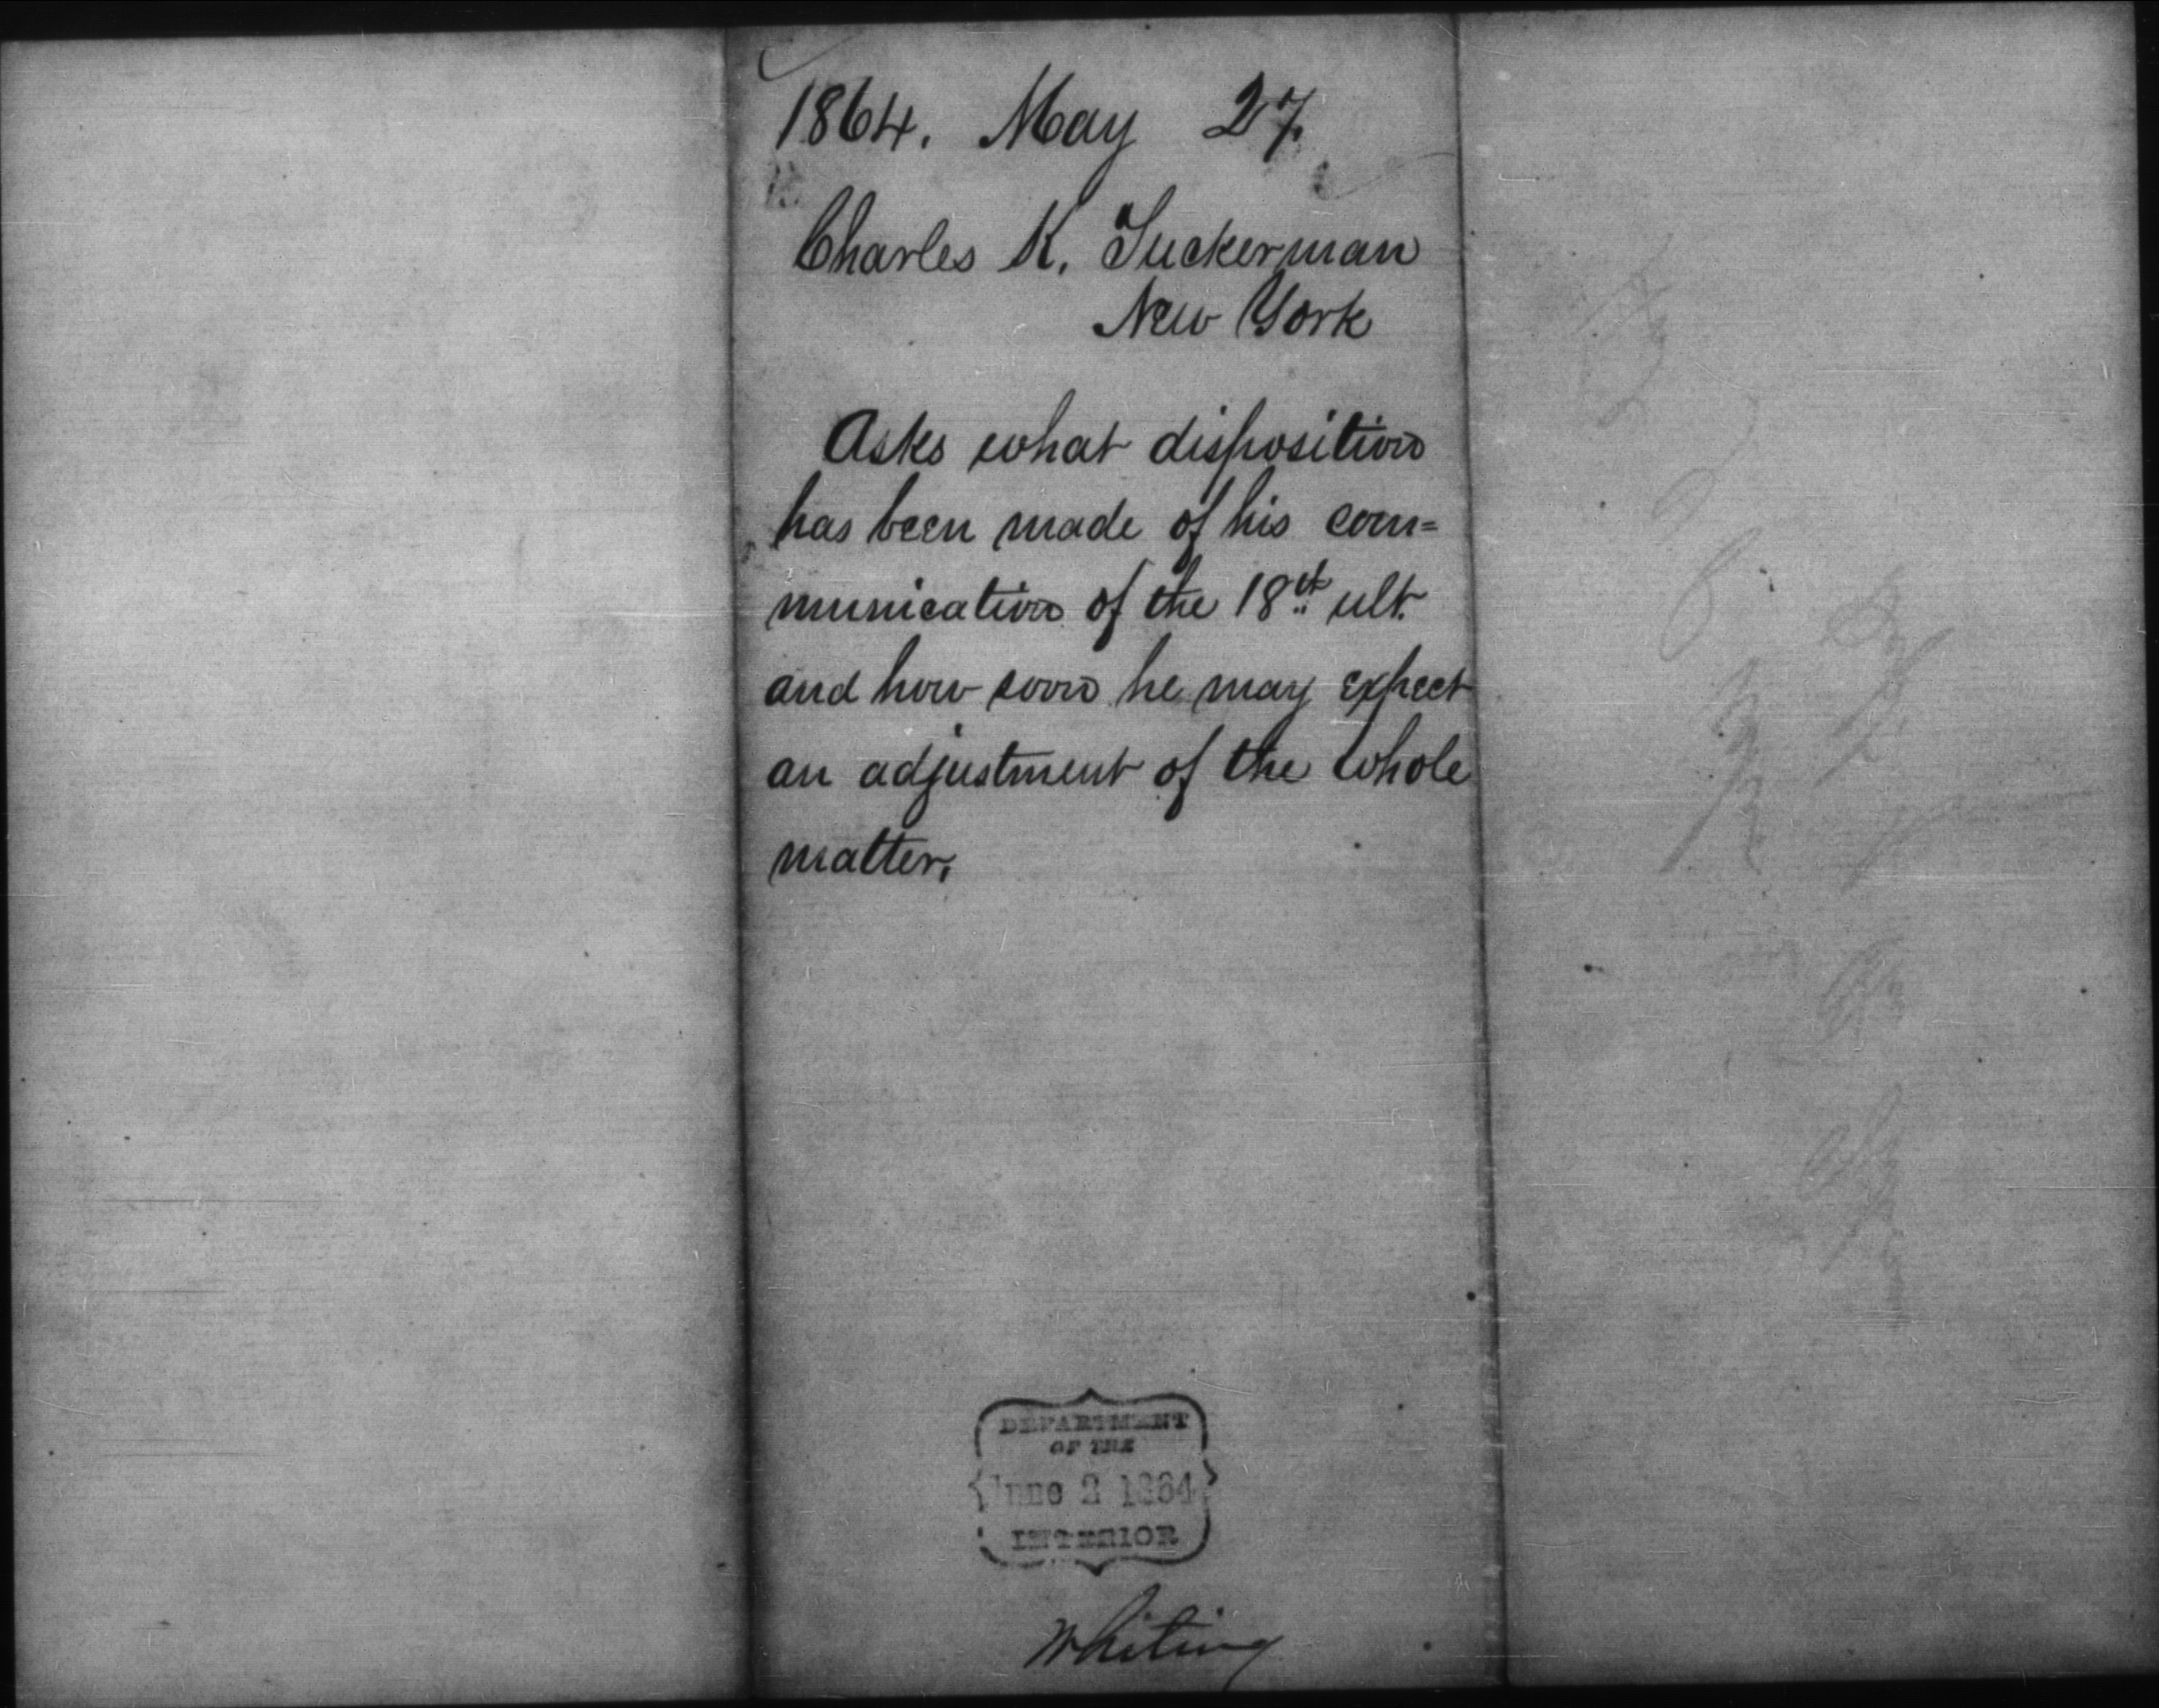 1864. May 27.
Charles K. Tuckerman
New York
Asks what disposition
has been made of his com=
munication of the 18th ult.
and how soon he may expect
an adjustment of the whole
matter.
DEPARTMENT
OF THE
June 2 1864
INTERIOR
Whiting